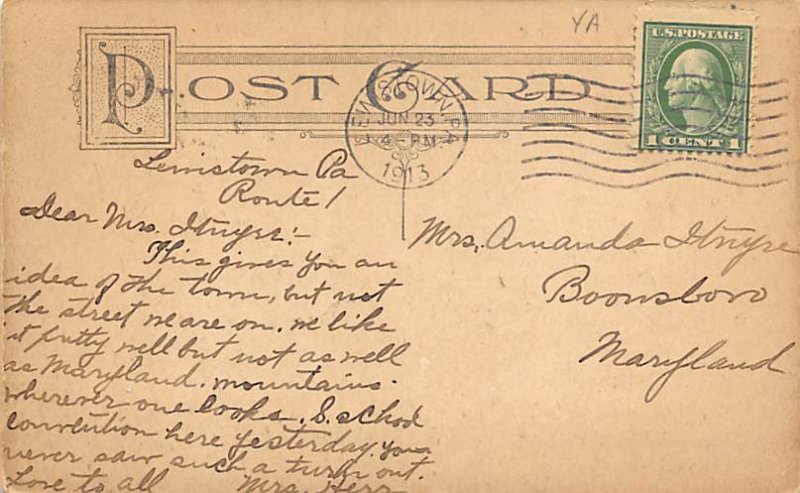 YA
POST CARD
U.S. POSTAGE
1 CENT 1
LEWISTOWN, PA.
JUN 23
4 - PM
1913
Lewistown Pa
Route 1
Dear Mrs. Itnyre:-
This gives you an
idea of the town, but not
the street we are on. we like
it pretty well but not as well
as Maryland. mountains.
wherever one looks. S. School
convention here yesterday. you
never saw such a turn out.
Love to all Mrs. Herr
Mrs. Amanda Itnyre
Boonsboro
Maryland